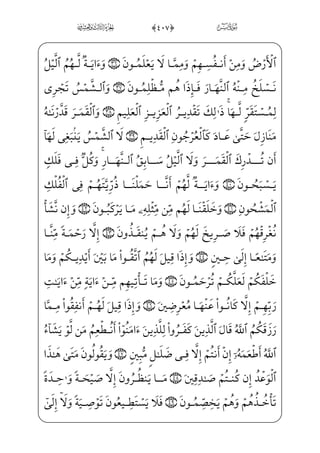 ﴿٤٠٧﴾
ٱلْأَرْضُ وَمِنْ أَنفُسِهِمْ وَمِمَّا لَا يَعْلَمُونَ ۝ وَءَايَةٌ لَّهُمُ ٱلَّيْلُ
نَسْلَخُ مِنْهُ ٱلنَّهَارَ فَإِذَا هُم مُّظْلِمُونَ ۝ وَٱلشَّمْسُ تَجْرِى
لِمُسْتَقَرٍّ لَّهَا ۚ ذَٰلِكَ تَقْدِيرُ ٱلْعَزِيزِ ٱلْعَلِيمِ ۝ وَٱلْقَمَرَ قَدَّرْنَٰهُ
مَنَازِلَ حَتَّىٰ عَادَ كَٱلْعُرْجُونِ ٱلْقَدِيمِ ۝ لَا ٱلشَّمْسُ يَنۢبَغِى لَهَا
أَن تُدْرِكَ ٱلْقَمَرَ وَلَا ٱلَّيْلُ سَابِقُ ٱلنَّهَارِ ۚ وَكُلٌّ فِى فَلَكٍ
يَسْبَحُونَ ۝ وَءَايَةٌ لَّهُمْ أَنَّا حَمَلْنَا ذُرِّيَّتَهُمْ فِى ٱلْفُلْكِ
ٱلْمَشْحُونِ ۝ وَخَلَقْنَا لَهُم مِّن مِّثْلِهِۦ مَا يَرْكَبُونَ ۝ وَإِن نَّشَأْ
نُغْرِقْهُمْ فَلَا صَرِيخَ لَهُمْ وَلَا هُمْ يُنقَذُونَ ۝ إِلَّا رَحْمَةً مِّنَّا
وَمَتَٰعًا إِلَىٰ حِينٍ ۝ وَإِذَا قِيلَ لَهُمُ ٱتَّقُوا۟ مَا بَيْنَ أَيْدِيكُمْ وَمَا
خَلْفَكُمْ لَعَلَّكُمْ تُرْحَمُونَ ۝ وَمَا تَأْتِيهِم مِّنْ ءَايَةٍ مِّنْ ءَايَٰتِ
رَبِّهِمْ إِلَّا كَانُوا۟ عَنْهَا مُعْرِضِينَ ۝ وَإِذَا قِيلَ لَهُمْ أَنفِقُوا۟ مِمَّا
رَزَقَكُمُ ٱللَّهُ قَالَ ٱلَّذِينَ كَفَرُوا۟ لِلَّذِينَ ءَامَنُوٓا۟ أَنُطْعِمُ مَن لَّوْ يَشَآءُ
ٱللَّهُ أَطْعَمَهُۥٓ إِنْ أَنتُمْ إِلَّا فِى ضَلَٰلٍ مُّبِينٍ ۝ وَيَقُولُونَ مَتَىٰ هَٰذَا
ٱلْوَعْدُ إِن كُنتُمْ صَٰدِقِينَ ۝ مَا يَنظُرُونَ إِلَّا صَيْحَةً وَٰحِدَةً
تَأْخُذُهُمْ وَهُمْ يَخِصِّمُونَ ۝ فَلَا يَسْتَطِيعُونَ تَوْصِيَةً وَلَآ إِلَىٰٓ